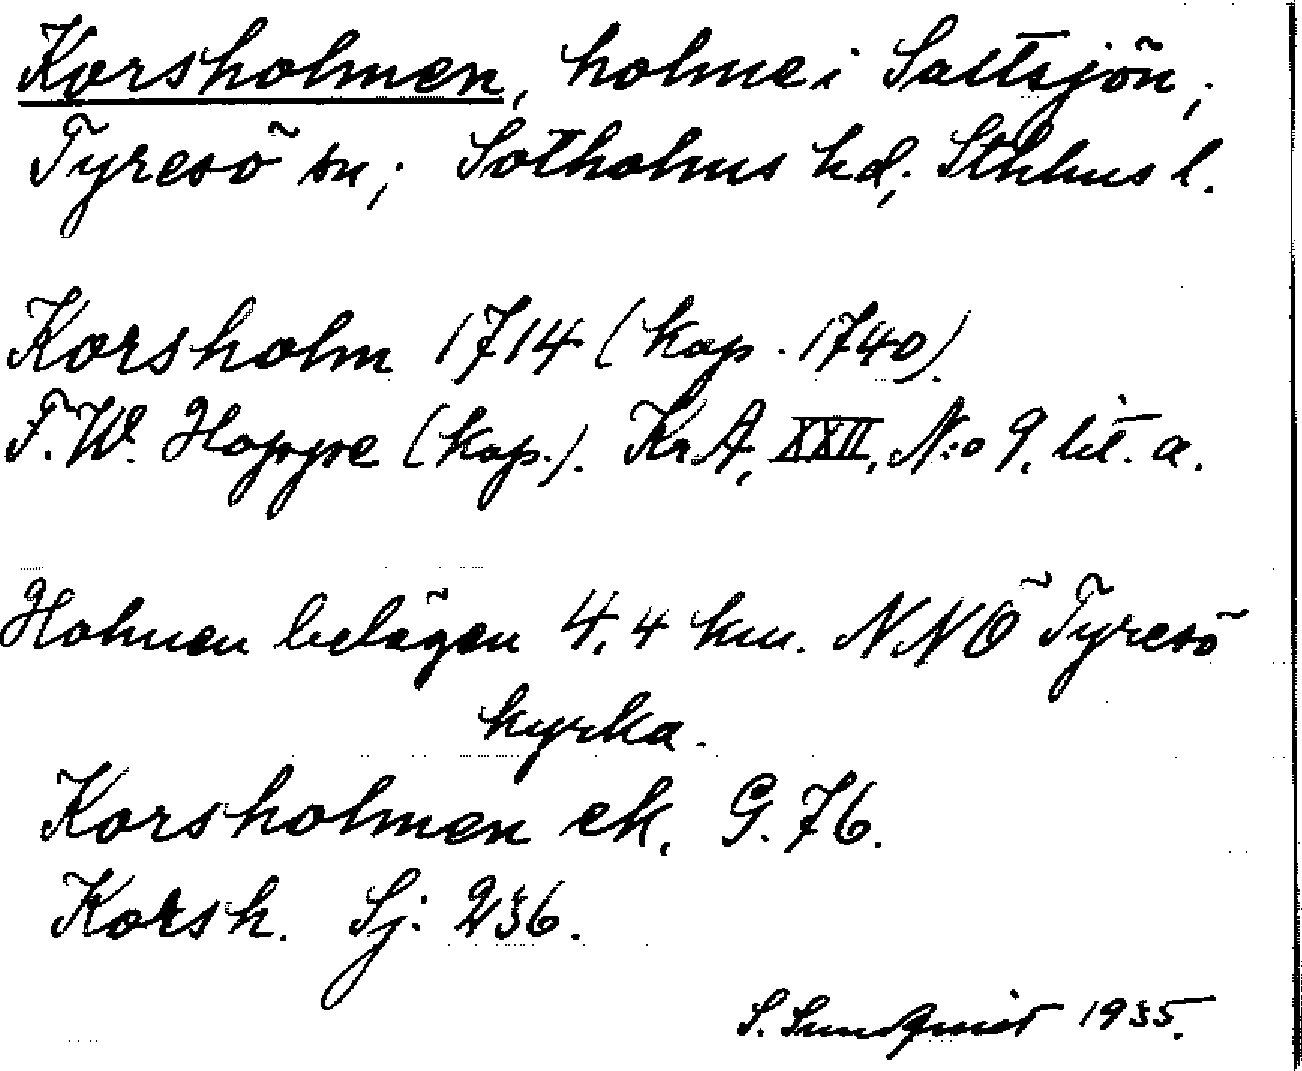 Korsholmen, holme i Saltsjön,
Tyresö sn; Sotholms hd, Sthlms l.
Korsholm 1714 (kop. 1740).
F.W. Hoppe (kop.). KrA, XXII, N:o 9. lit. a.
Holmen belägen 4,4 km. NNÖ Tyresö
kyrka.
Korsholmen ek. G. 76.
Korsh. Sj. 236.
S. Sundquist 1935.